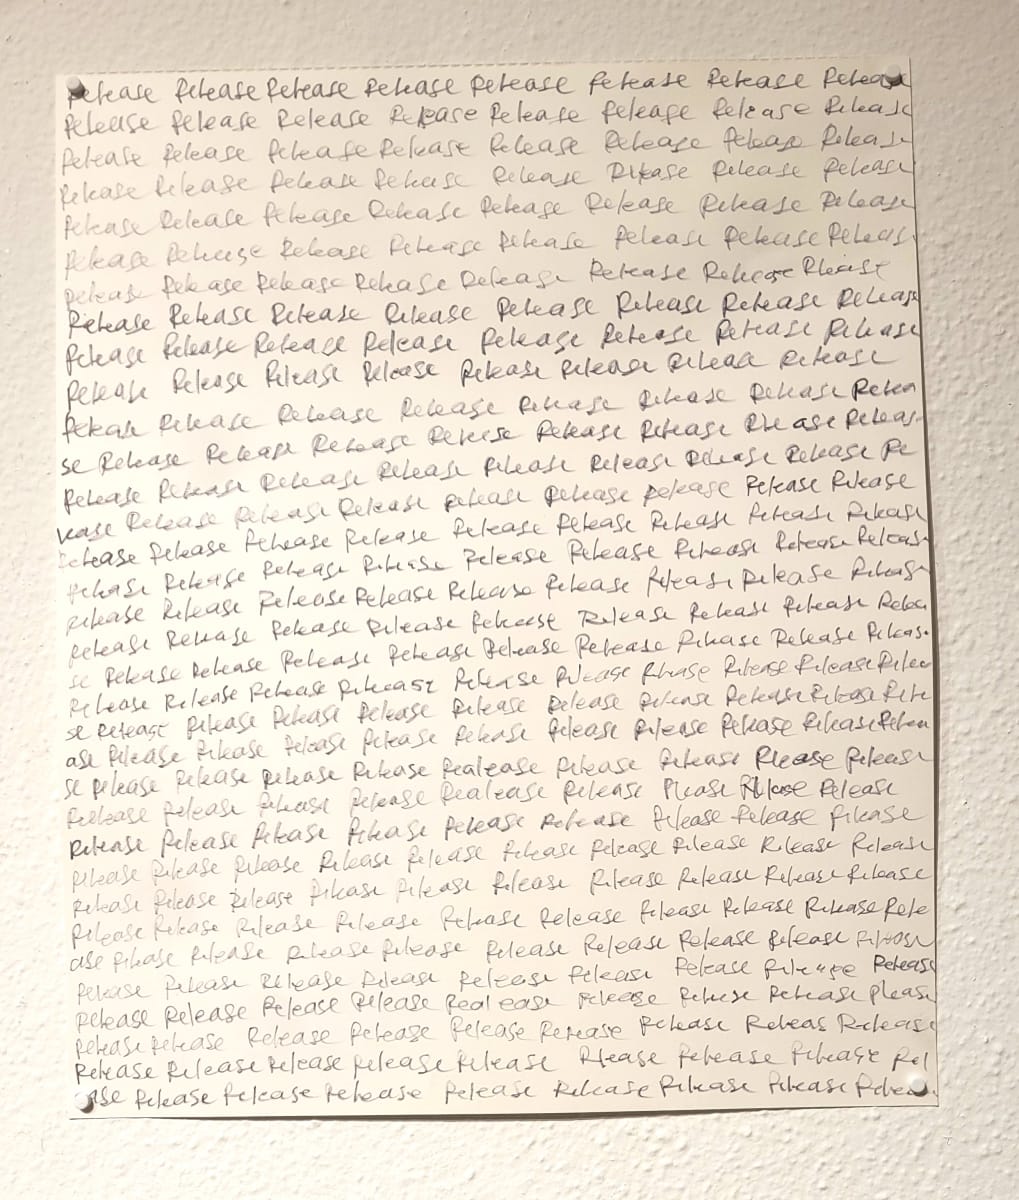 Release Release Release Release Release Release Release Release
Release Release Release Release Release Release Release Release
Release Release Release Release Release Release Release Release
Release Release Release Release Release Release Release Release
Release Release Release Release Release Release Release Release
Release Release Release Release Release Release Release Releas
Release Release Release Release Release Release Release Rlease
Release Release Release Release Release Release Release Release
Release Release Release Release Release Release Release Release
Release Release Release Release Release Release Release Release
Release Release Release Release Release Release Release Relea
se Release Release Release Release Release Release Release Releas
Release Release Release Release Release Release Release Release Re
lease Release Release Release Release Release Release Release Release
Release Release Release Release Release Release Release Release Release
Release Release Release Release Release Release Release Release Releas
Release Release Release Release Release Release Release Release Release
Release Release Release Release Release Release Release Release Relea
se Release Release Release Release Release Release Release Releas
Release Release Release Release Release Release Release Release Release Relea
se Release Release Release Release Release Release Release Release Release Rele
ase Release Release Release Release Release Release Release Release Release Relea
se Release Release Release Release Realease Release Release Rlease Release
Release Release Release Release Realease Release Please Release Release
Release Release Release Release Release Release Release Release Release
Release Release Release Release Release Release Release Release Release Release
Release Release Release Release Release Release Release Release Release Release
Release Release Release Release Release Release Release Release Release Rele
ase Release Release Release Release Release Release Release Release Release
Release Release Release Release Release Release Release Release Release
Release Release Release Release Realease Release Release Release Please
Release Release Release Release Release Release Release Releas Release
Release Release Release Release Release Rlease Release Release Rel
ase Release Release Release Release Release Release Release Relea